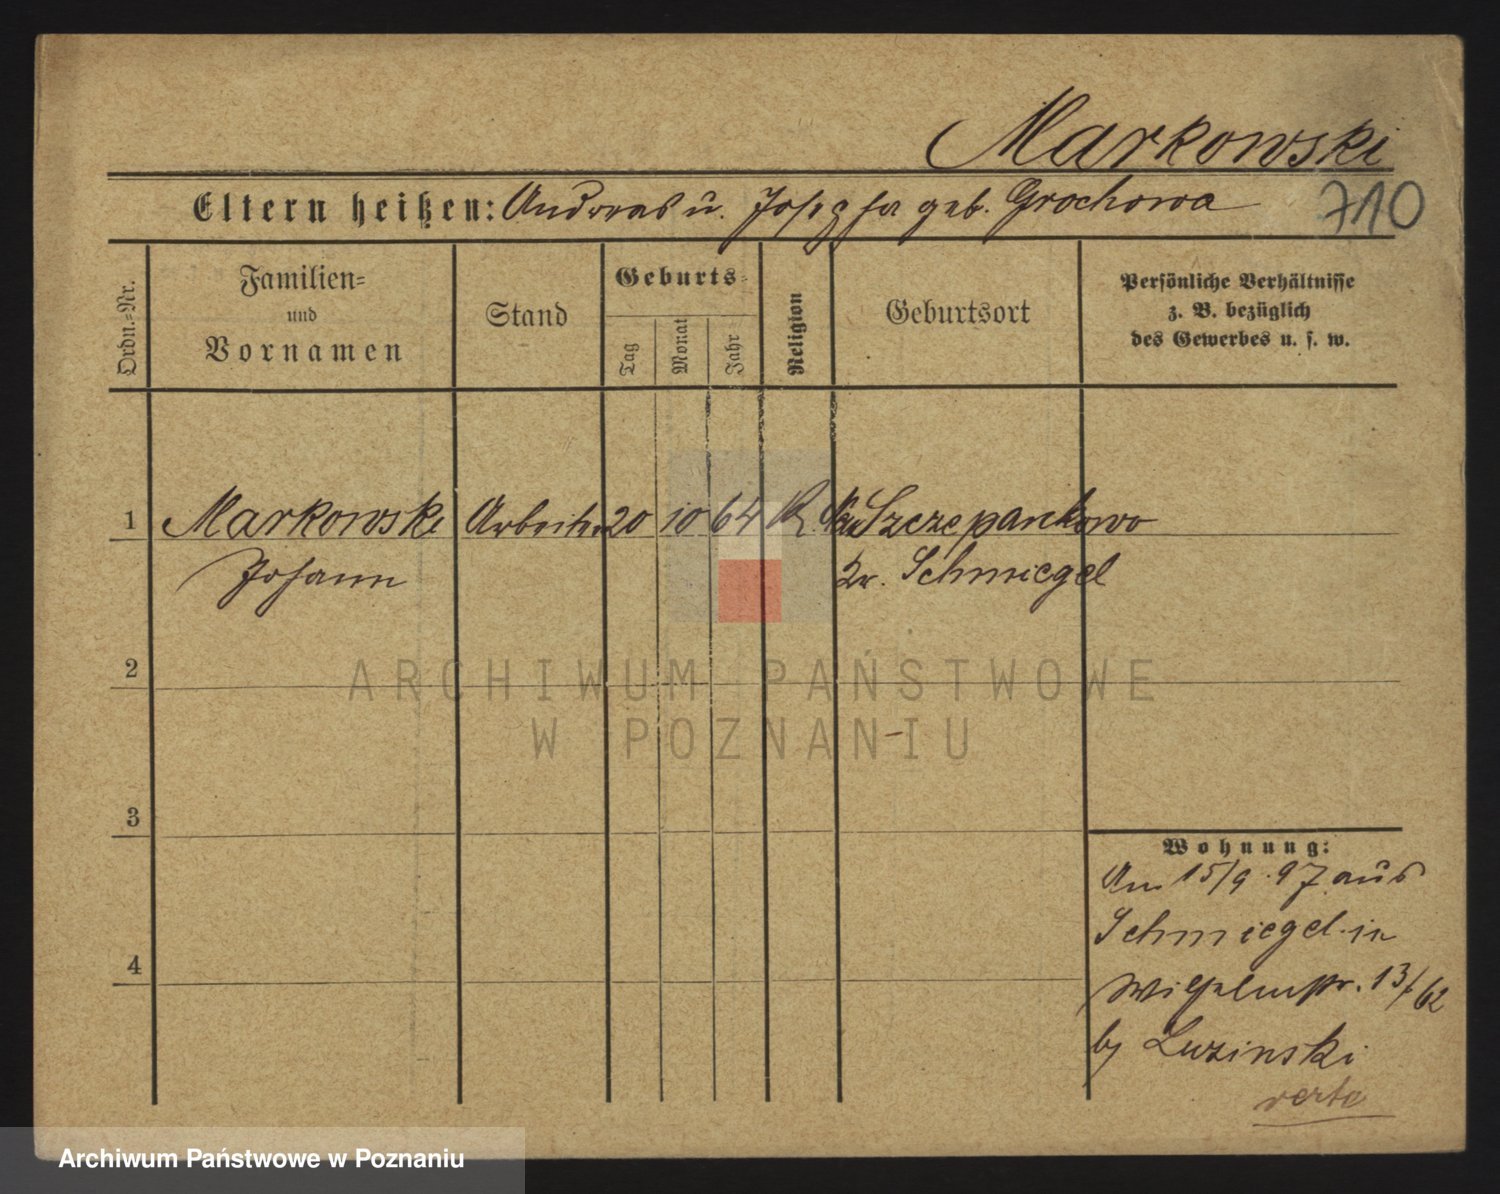 Markowski
Eltern heißen: Andreas u. Josepha geb. Grochowa
710
Ordn.-Nr.
Familien-
und
Vornamen
Stand
Geburts-
Tag
Monat
Jahr
Religion
Geburtsort
Persönliche Verhältnisse
z. B. bezüglich
des Gewerbes u. s. w.
1 Markowski Arbeiter 20 10 64 Szczepankowo
Johann Kr. Schmiegel
2
3
4
Wohnung:
Am 15/9. 97 aus
Schmiegel in
Wilhelmstr. 13/62
by Luzinski
verte
ARCHIWUM PAŃSTWOWE
W POZNANIU
Archiwum Państwowe w Poznaniu